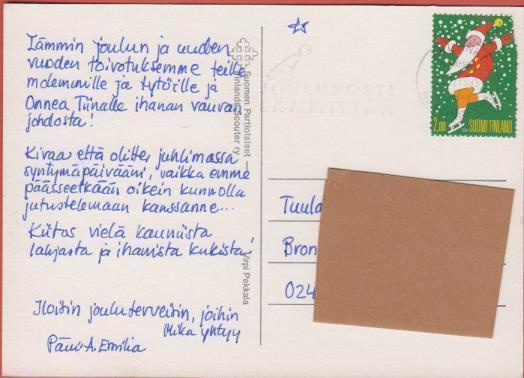 Lämmin joulun ja uuden
vuoden toivotuksemme teille
molemmille ja tytöille ja
Onnea Tiinalle ihanan vauvan
johdosta!
Kivaa että olitte juhlimassa
syntymäpäivääni, vaikka emme
päässeetkään oikein kunnolla
jutustelemaan kanssanne....
Kiitos vielä kauniista
lahjasta ja ihanista kukista!
Iloisin jouluterveisin, joihin
Mika yhtyy
Päivi A. Emilia
Suomen Partiolaiset —
Finlands Scouter ry
Virpi Pekkala
JOULUPOSTI
LÄMMITTÄÄ
2,00 SUOMI FINLAND
Tuula
Bron
024